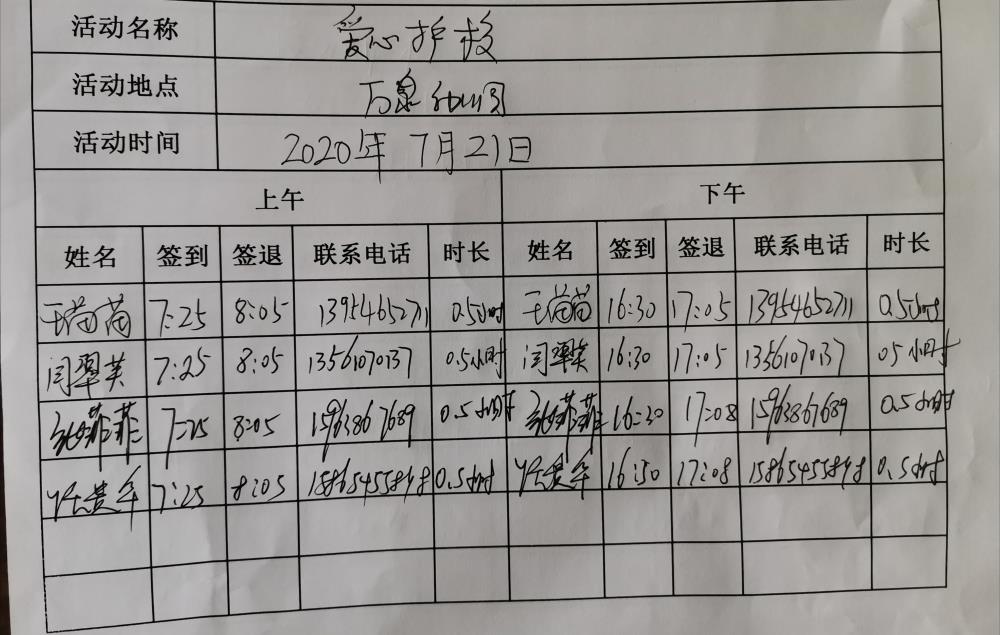 活动名称 爱心护校
活动地点 万泉
活动时间 2020年7月21日
上午 下午
姓名 签到 签退 联系电话 时长 姓名 签到 签退 联系电话 时长
7:25 8:05 13954652711 0.5小时 16:30 17:05 13954652711 0.5小时
闫翠英 7:25 8:05 13561070137 0.5小时 闫翠英 16:30 17:05 13561070137 0.5小时
菲菲 7:25 8:05 15963867689 0.5小时 菲菲 16:30 17:08 15963867689 0.5小时
7:25 8:05 15865455898 0.5小时 16:30 17:08 15865455898 0.5小时